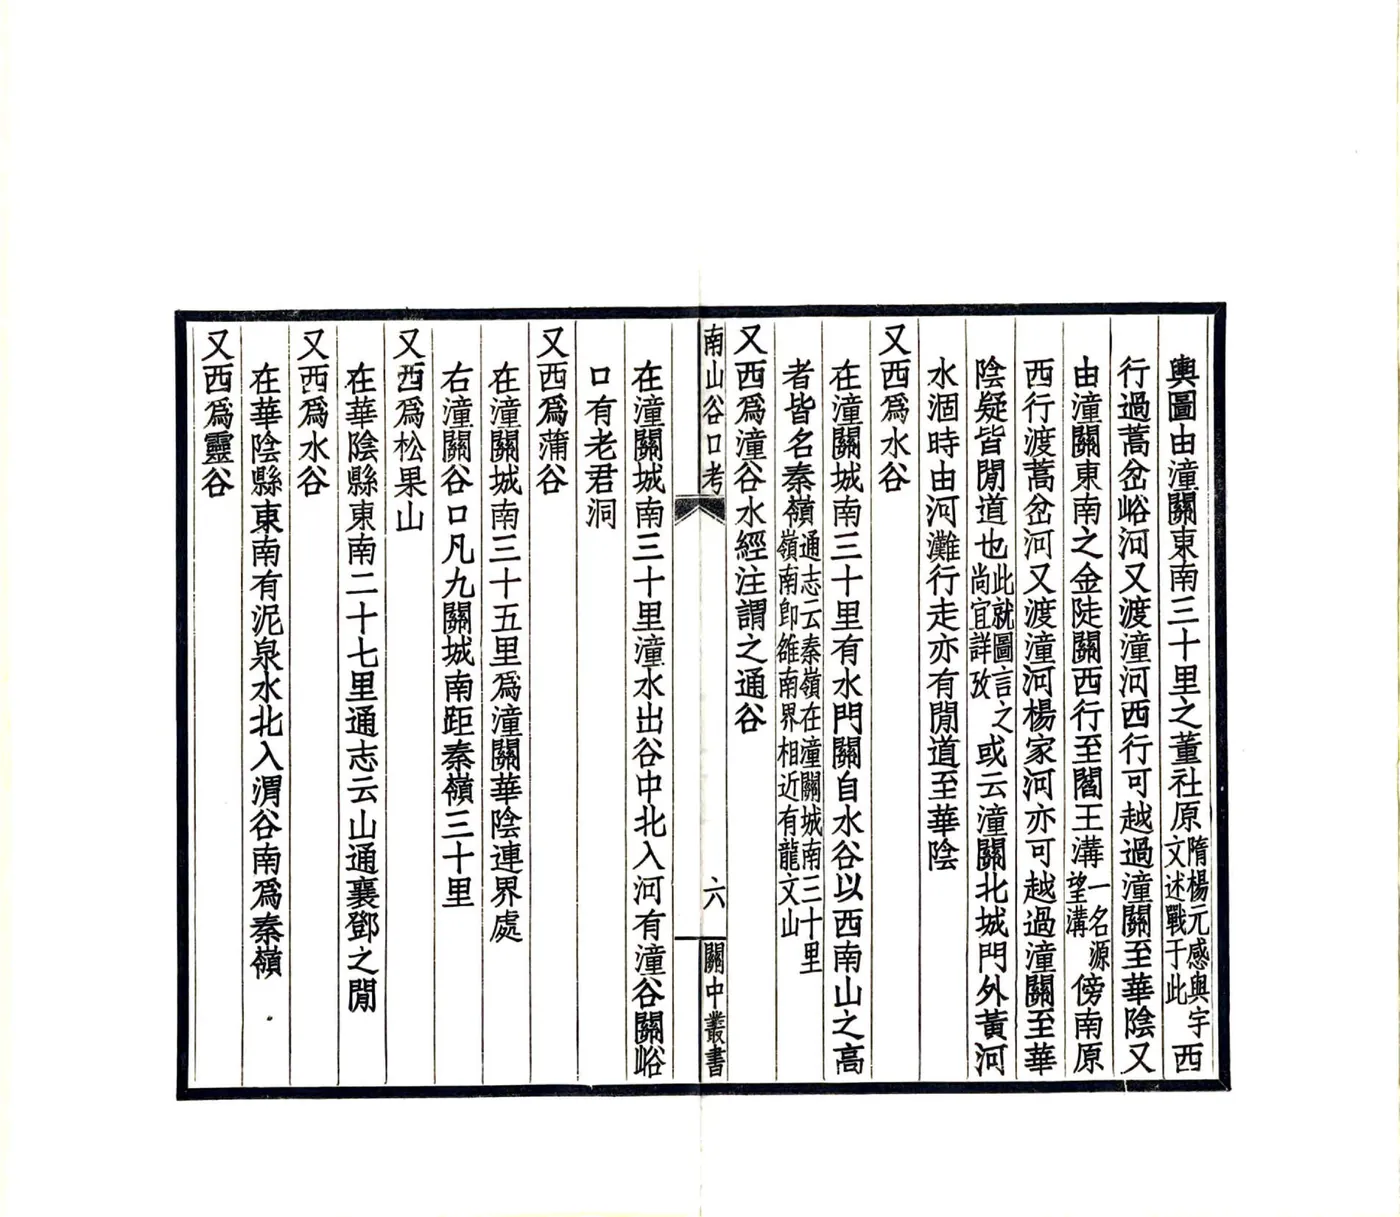 輿圖由潼關東南三十里之董社原隋楊元感與宇文述戰于此西
行過蒿岔峪河又渡潼河西行可越過潼關至華陰又
由潼關東南之金陡關西行至閻王溝一名源望溝傍南原
西行渡蒿岔河又渡潼河楊家河亦可越過潼關至華
陰疑皆閒道也此就圖言之尚宜詳攷或云潼關北城門外黃河
水涸時由河灘行走亦有閒道至華陰
又西爲水谷
在潼關城南三十里有水門關自水谷以西南山之高
者皆名秦嶺通志云秦嶺在潼關城南三十里嶺南卽雒南界相近有龍文山
又西爲潼谷水經注謂之通谷
南山谷口考
六
關中叢書
在潼關城南三十里潼水出谷中北入河有潼谷關峪
口有老君洞
又西爲蒲谷
在潼關城南三十五里爲潼關華陰連界處
右潼關谷口凡九關城南距秦嶺三十里
又西爲松果山
在華陰縣東南二十七里通志云山通襄鄧之閒
又西爲水谷
在華陰縣東南有泥泉水北入渭谷南爲秦嶺
又西爲靈谷